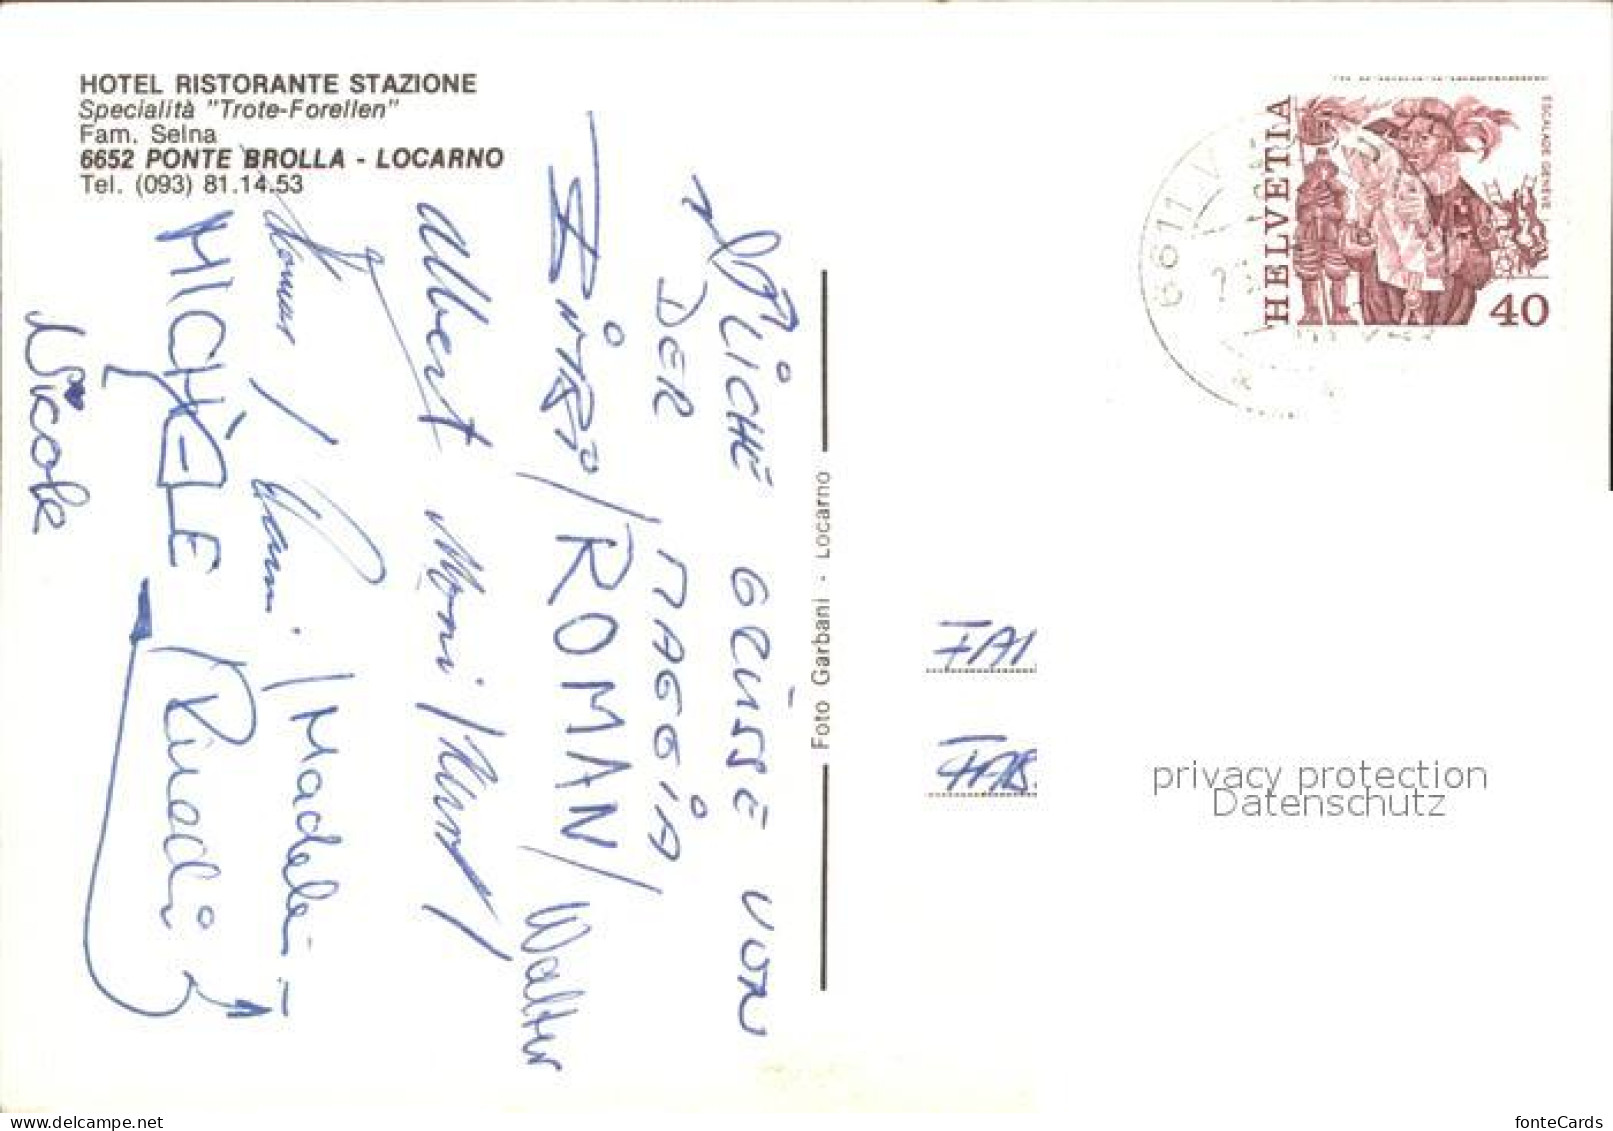 HOTEL RISTORANTE STAZIONE
Specialità "Trote-Forellen"
Fam. Selna
6652 PONTE BROLLA - LOCARNO
Tel. (093) 81.14.53
GRÜSSE VON
DER MAGGIA
/ ROMAN / Walter
Albert Moni / Kurt /
/ Madelei-
MICHÈLE / Ruedi
Nicole
Foto Garbani - Locarno
HELVETIA
ESCALADE GENÈVE
40
6611
FAM
privacy protection
Datenschutz
www.ansichtskartenversand.com
fonteCards